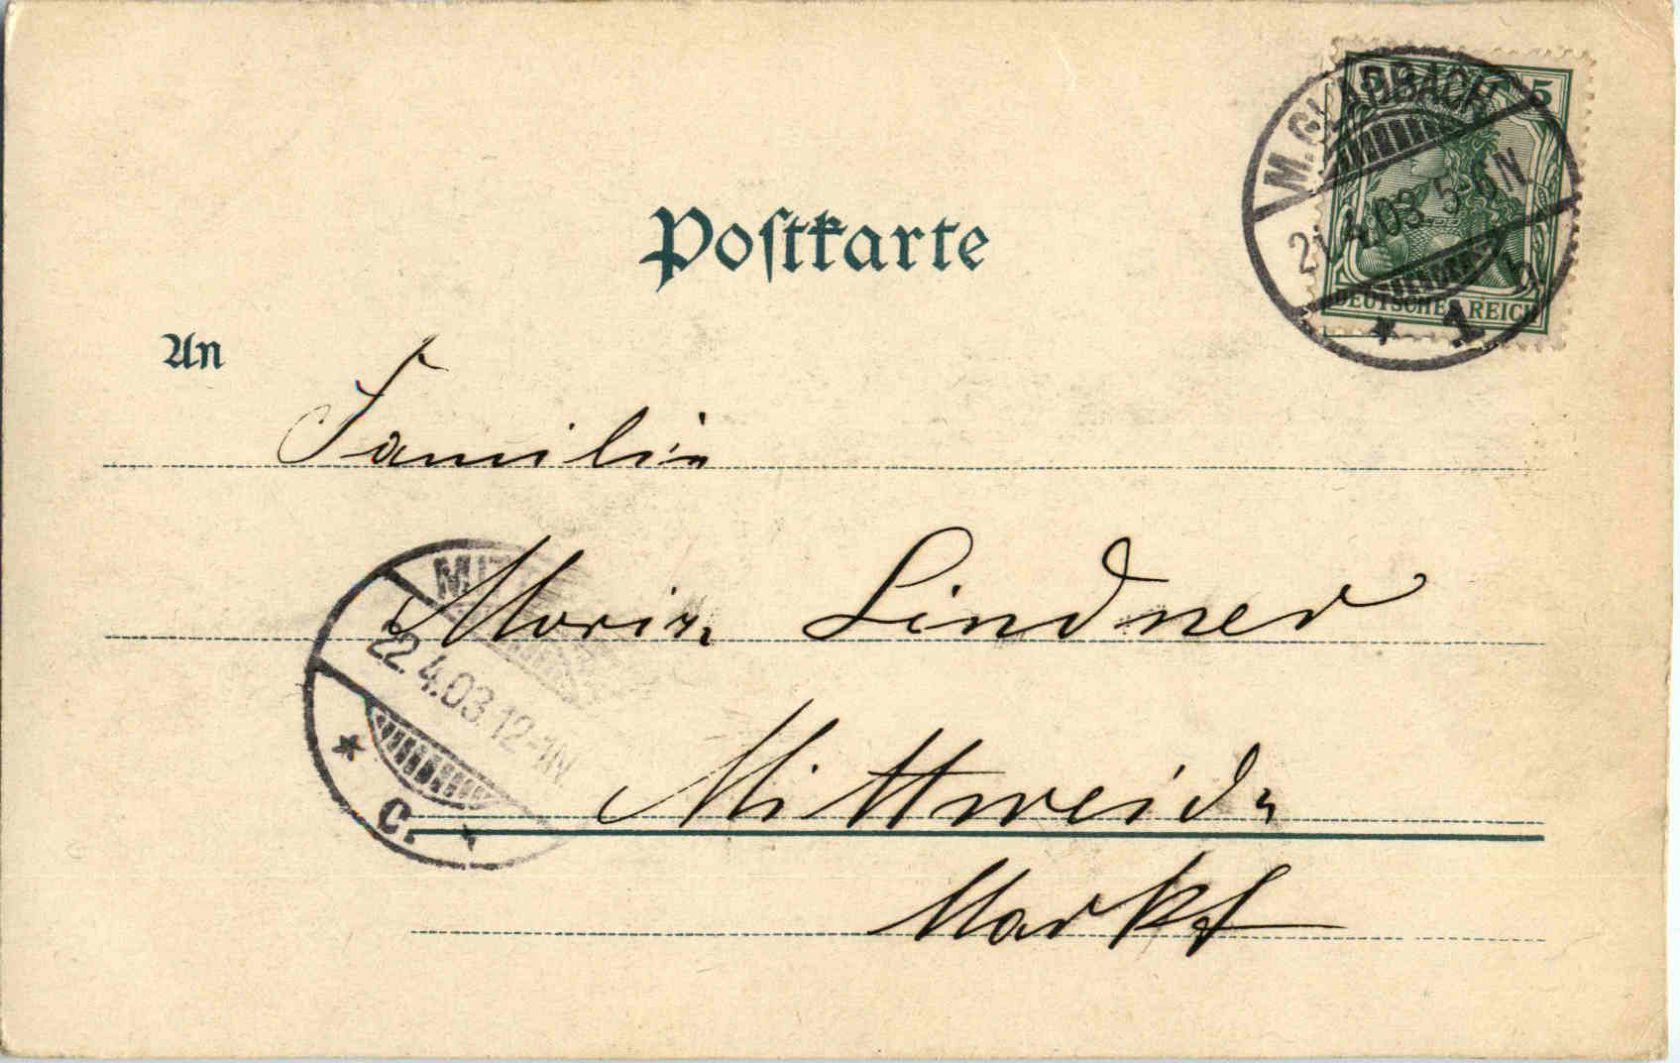 M. GLADBACH
5
21.4.03 5-6N
DEUTSCHES REICH
* 1 h
Postkarte
An
Familie
Moriz Lindner
22.4.03. 12-1N
* c. *
Mittweida
Markt